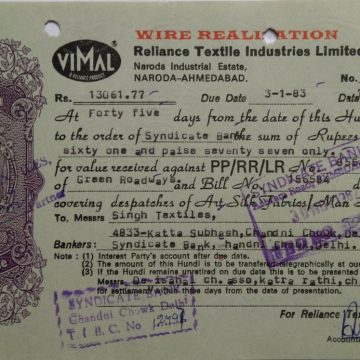 WIRE REALISATION
VIMAL
A RELIANCE PRODUCT
Reliance Textile Industries Limited
Naroda Industrial Estate,
NARODA-AHMEDABAD. No.
Rs. 13061.77 Due Date 3-1-83
At Forty five days from the date of this Hu
to the order of Syndicate Bank the sum of Rupees
sixty one and paise seventy seven only.
for value received against PP/RR/LR No.
of Green Roadways and Bill No.
covering despatches of Art Silk Fabrics/Man
To, Messrs Singh Textiles,
4833-Katta Subhash, Chandni Chowk, Delhi.
Bankers: Syndicate Bank, Chandni Chowk, Delhi.
Note : (1) Interest Party's account after due date.
(2) The amount of this Hundi is to be transferred telegraphically at our
(3) If the Hundi remains unretired on due date this is to be presented
Messrs
for settlement within three days from the date of presentation.
SYNDICATE BANK
Chandni Chowk Delhi
T. I. B. C. No
For Reliance Text
Accounta
SYNDICATE BANK